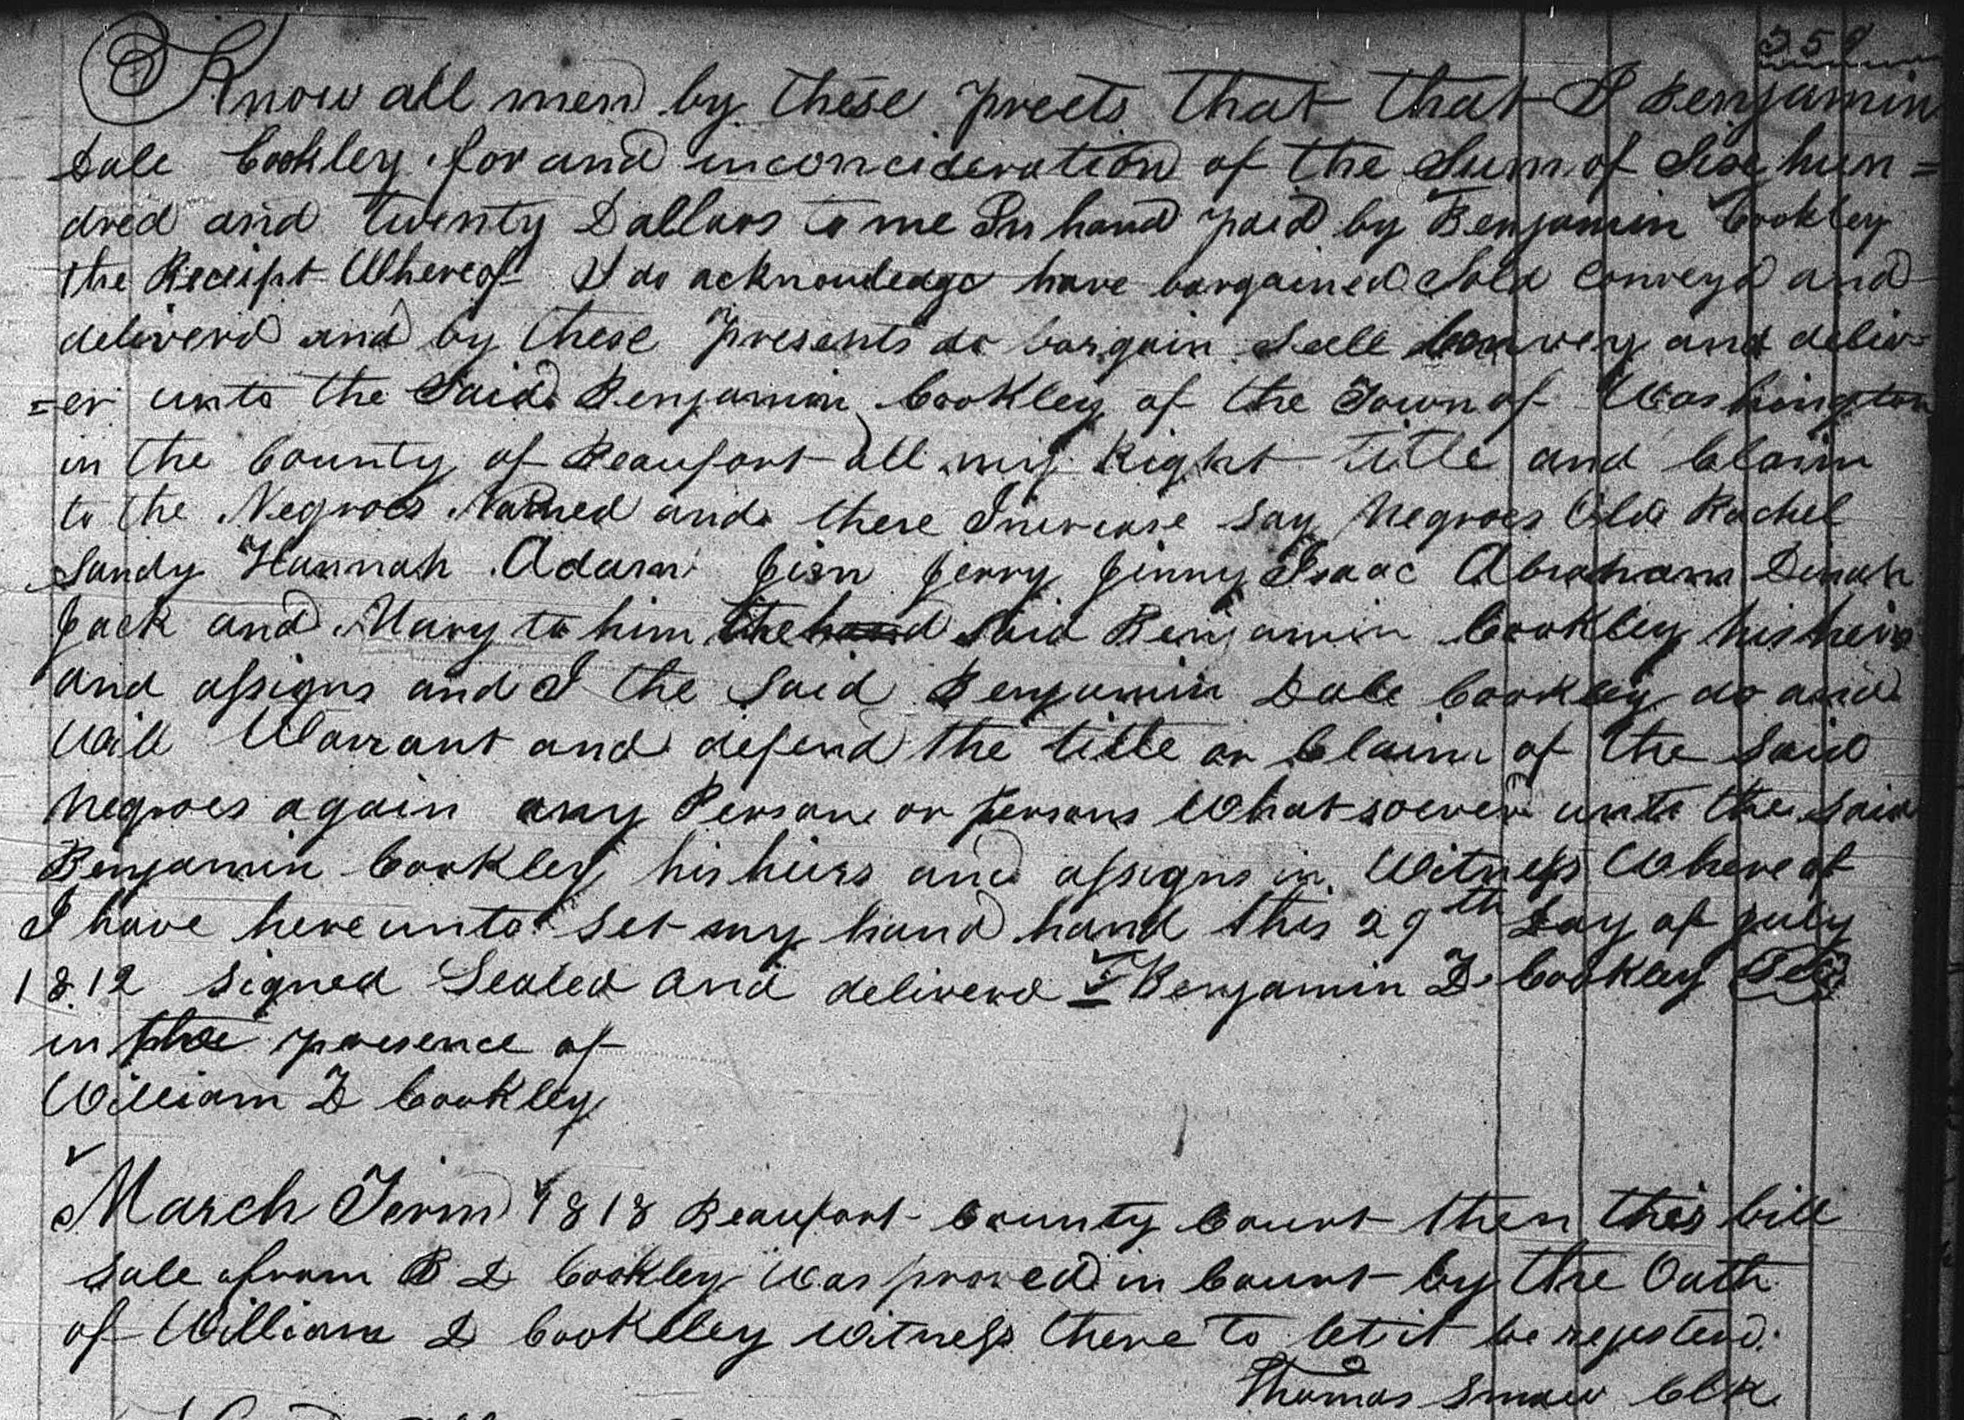 359
Know all men by these preets that that I Benjamin
Dale Cookley for and inconcideration of the Sum of Six hun=
dred and twenty Dallars to me In hand paid by Benjamin Cookley
the Receipt Whereof I do acknowledge have bargained Sold Conveyd and
deliverd and by these presents do bargain Sell Convey and deliv=
=er unto the Said Benjamin Cookley of the Town of Washington
in the County of Beaufort all my Right title and Claim
to the Negroes Named and there Increase say Negroes Old Rachel
Sandy Hannah Adam Jim Jerry Jinny Isaac Abraham Dinah
Jack and Mary to him the hand Said Benjamin Cookley his heirs
and assigns and I the Said Benjamin Dale Cookley do and
Will Warrant and defend the title or Claim of the Said
Negroes again any Person or persons Whatsoever unto the said
Benjamin Cookley his hiers and assigns in Witness Where of
I have hereunto set my hand hand this 29th Day of July
1812 signed Sealed and deliverd Benjamin D Cookley
in the presence of
William D Cookley
March Term 1818 Beaufort County Court then this bill
Sale from B D Cookley Was proved in Court by the Oath
of William D Cookley witness there to let it be regesterd.
Thomas Smaw Clk.